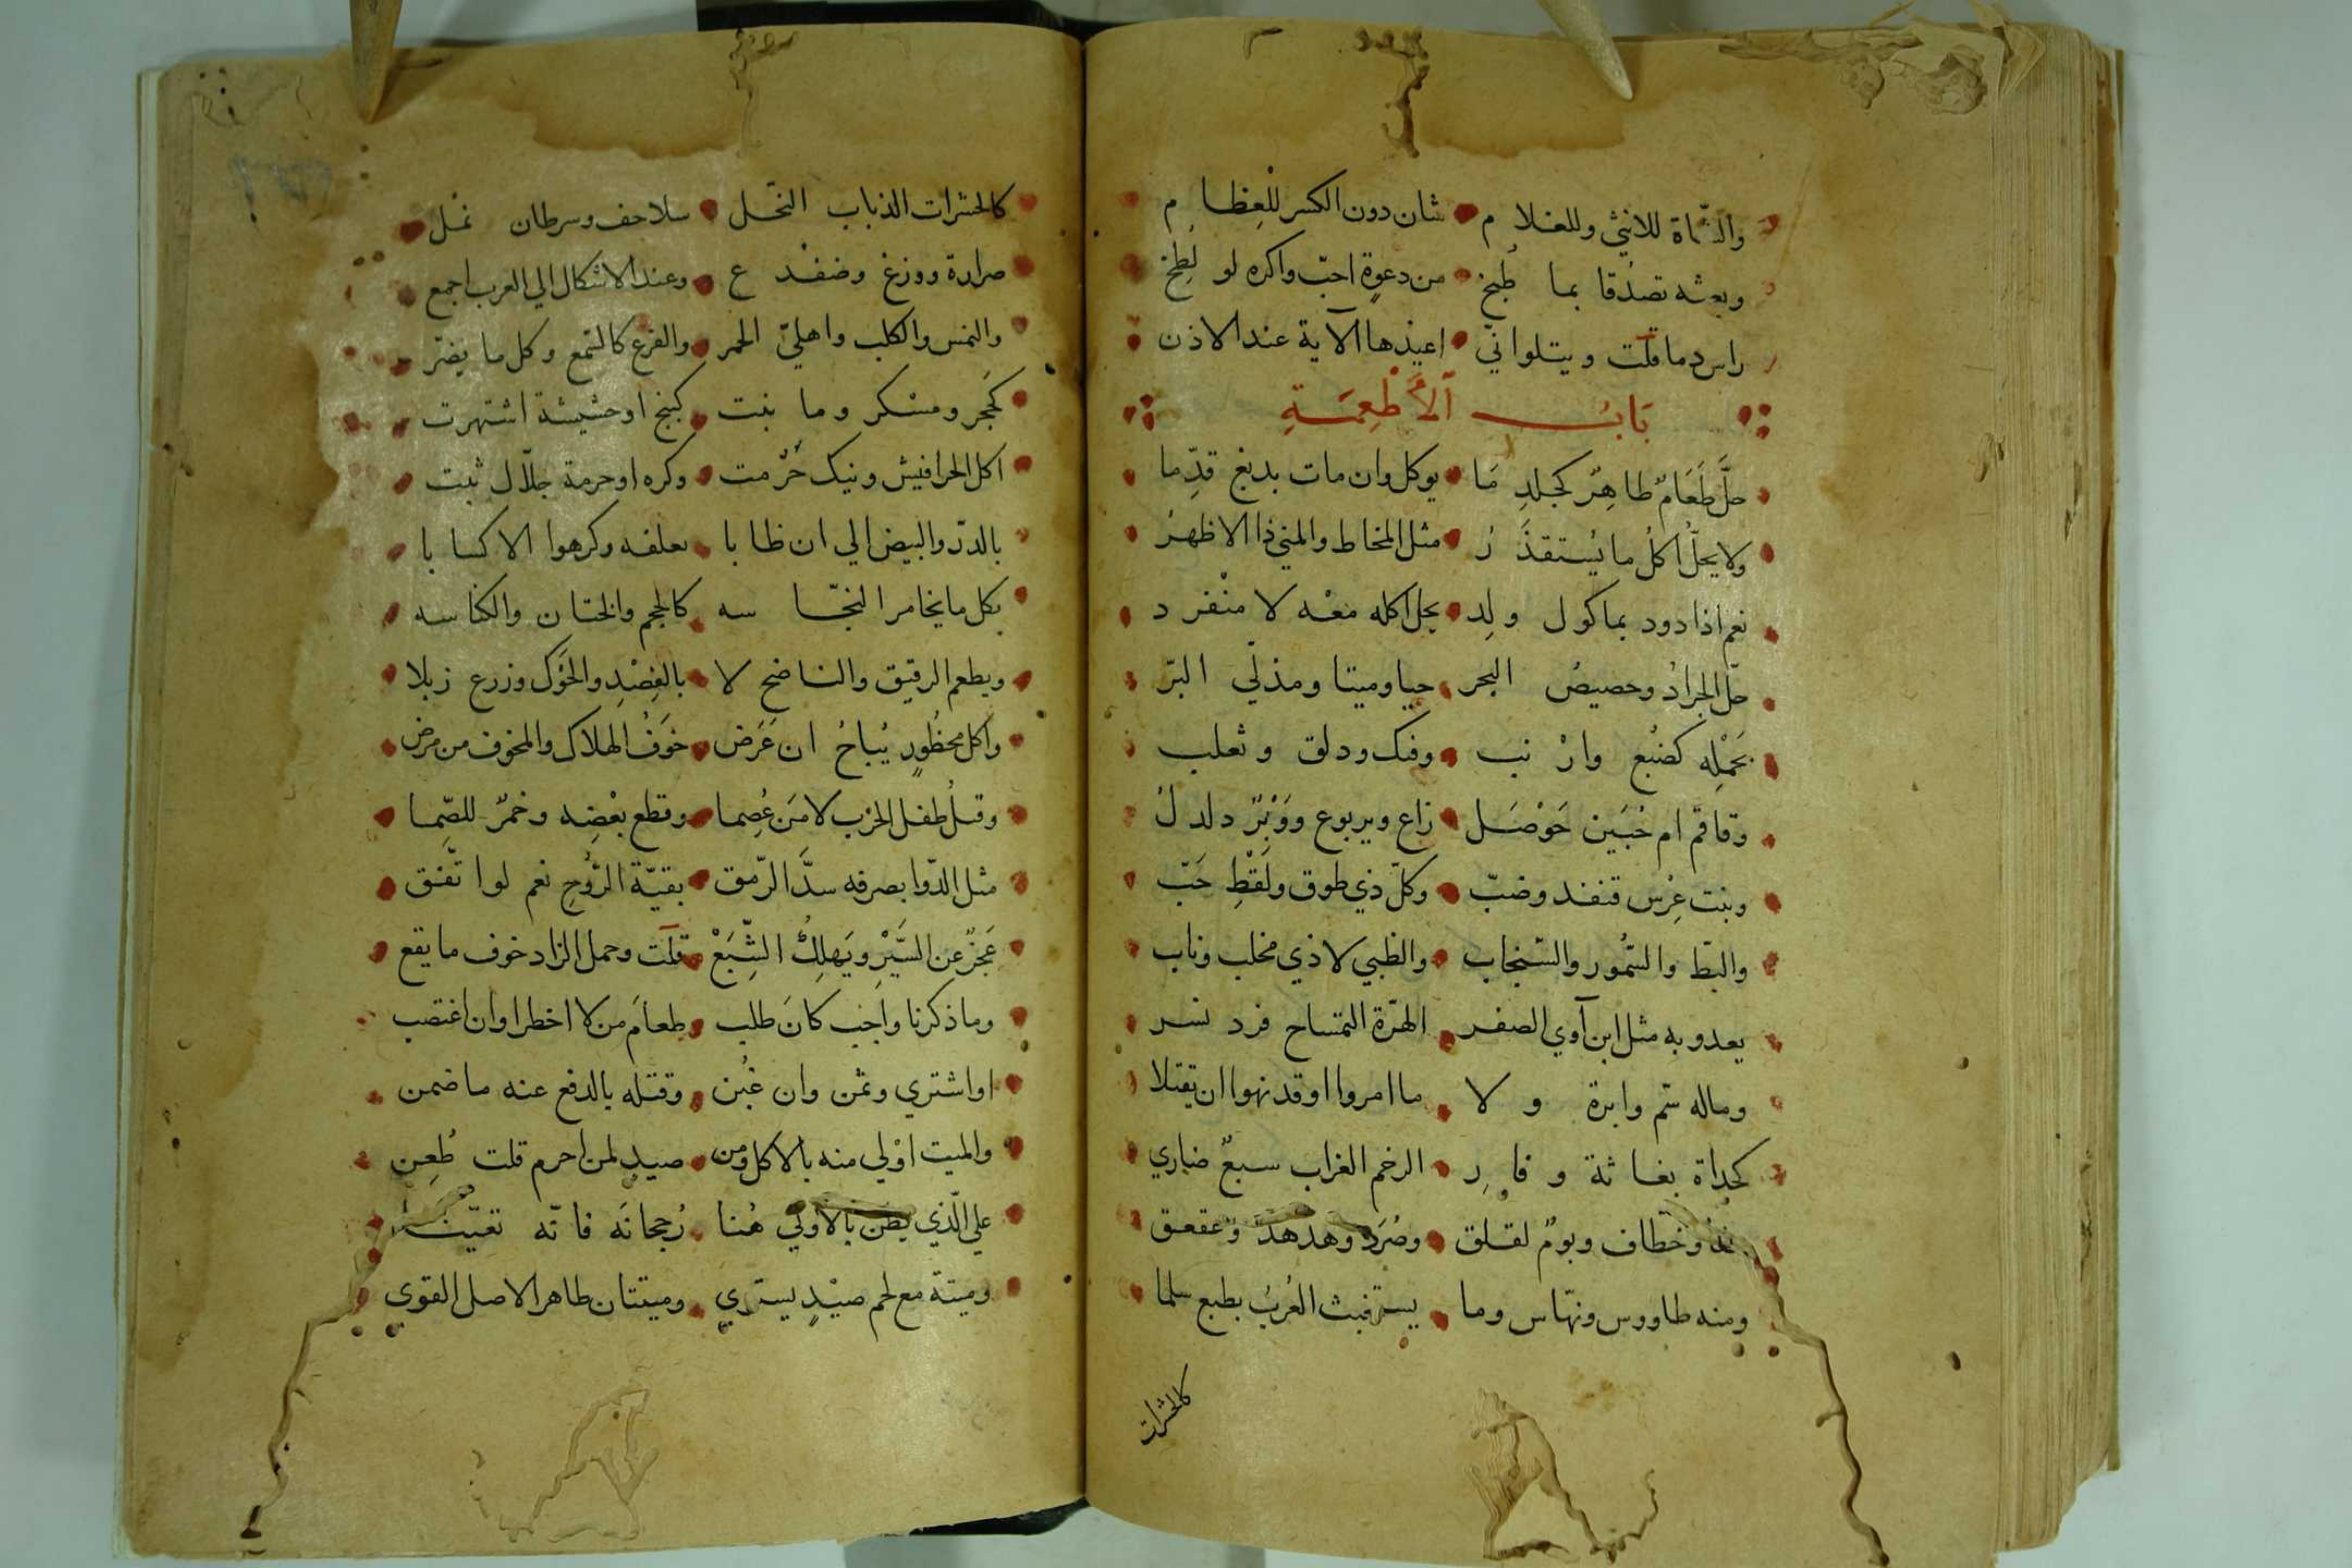 والشاة للانثي وللغلام شان دون الكسر للعظام
وبعثه تصدقا بما طُبخ من دعوةٍ احبّ واكره لو لُطِخ
راس دما قلت ويتلو اني اعيذها الآية عند الاذن
بَابُ الأَطْعِمَةِ
حلَّ طَعَامٌ طاهِرٌ كجلدِ مَا يوكل وان مات بدبغ قدِّما
ولا يحلُّ اكلُ ما يُستقذَرُ مثل المخاط والمني ذا الاظهرُ
نعم اذا دود بماكول ولِد يحل اكله معْه لا منْفرد
حلّ الجرادُ وحصيصُ البحر حيا وميتا ومذكي البرّ
بحَمْلِه كضبُع وارْنب وفنك ودلق وثعلب
وقاقم ام حُبَين حَوْصَل زاع ويربوع ووَبْرٌ دلدلُ
وبنت عِرْس قنفد وضبّ وكلّ ذي طوق ولَقْطِ حَبّ
والبطّ والسّمُور والسّنجاب والظبي لا ذي مخلب وناب
يعدو به مثل ابن آوي الصقر الهرّة التمساح قرد نسر
وماله سّم وابرة ولا ما امروا او قد نهوا ان يقتلا
كحداة بغاثة وفار الرخم الغراب سبعٌ ضاري
وخطاف وبومٌ لقلق وصُرَد وهدهد وعقعق
ومنه طاووس ونهّاس وما يستخبث العُربُ بطبع سلما
كالحشرات
كالحشرات الذباب النّحل سلاحف وسرطان نمل
صرارة ووزغ وضفدع وعند الاشكال الي العرب اجمع
والنمس والكلب واهليّ الحمر والفرع كالسّمع وكل ما يضرّ
كحَجَر ومسْكر وما نبت كبنج او حشيشة اشتهرت
اكل الحرافيش ونيك حُرّمت وكره او حرمة جلّال ثبت
بالدرّ والبيض الي ان طابا بعلفه وكرهوا الاكسابا
بكل ما يخامر النجّاسه كالحجم والختان والكناسه
ويطعم الرقيق والناضح لا بالفِصْدِ والحَوْك وزرع زبلا
واكل محظُورٍ يُباحُ ان عَرَض خوَفُ الهلاك والمخوف من مرض
وقتلُ طفل الحرْب لا مَن عُصِما وقطع بعْضِه وخمرٌ للصّما
مثل الدّوا بصرفه سدَّ الرّمق بقيّة الرُّوحِ نعم لو اتّفق
عَجزٌ عن السَّيْرِ ويَهلِكُ الشِّبَعْ قلت وحمل الزاد خوف ما يقع
وما ذكرنا واجب كانَ طلب طعامَ من لا اخطرا وان اغتصب
او اشتري وثمن وان غبُن وقتله بالدفع عنه ما ضمن
والميت اوْلي منه بالاكل ومن صيدٍ لمن احرم قلت طُعِن
علي الّذي يظن بالاولي هُنا رُجحانَه فانّه تعيّنا
وميتة مع لحم صيْدٍ يستري وميتتان طاهر الاصل القوي